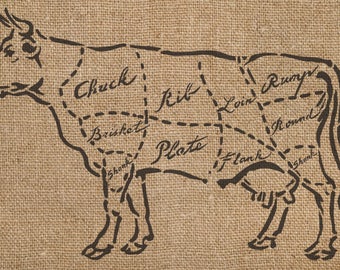 Chuck
Rib
Loin
Rump
Brisket
Round
Plate
Flank
Shank
Shank